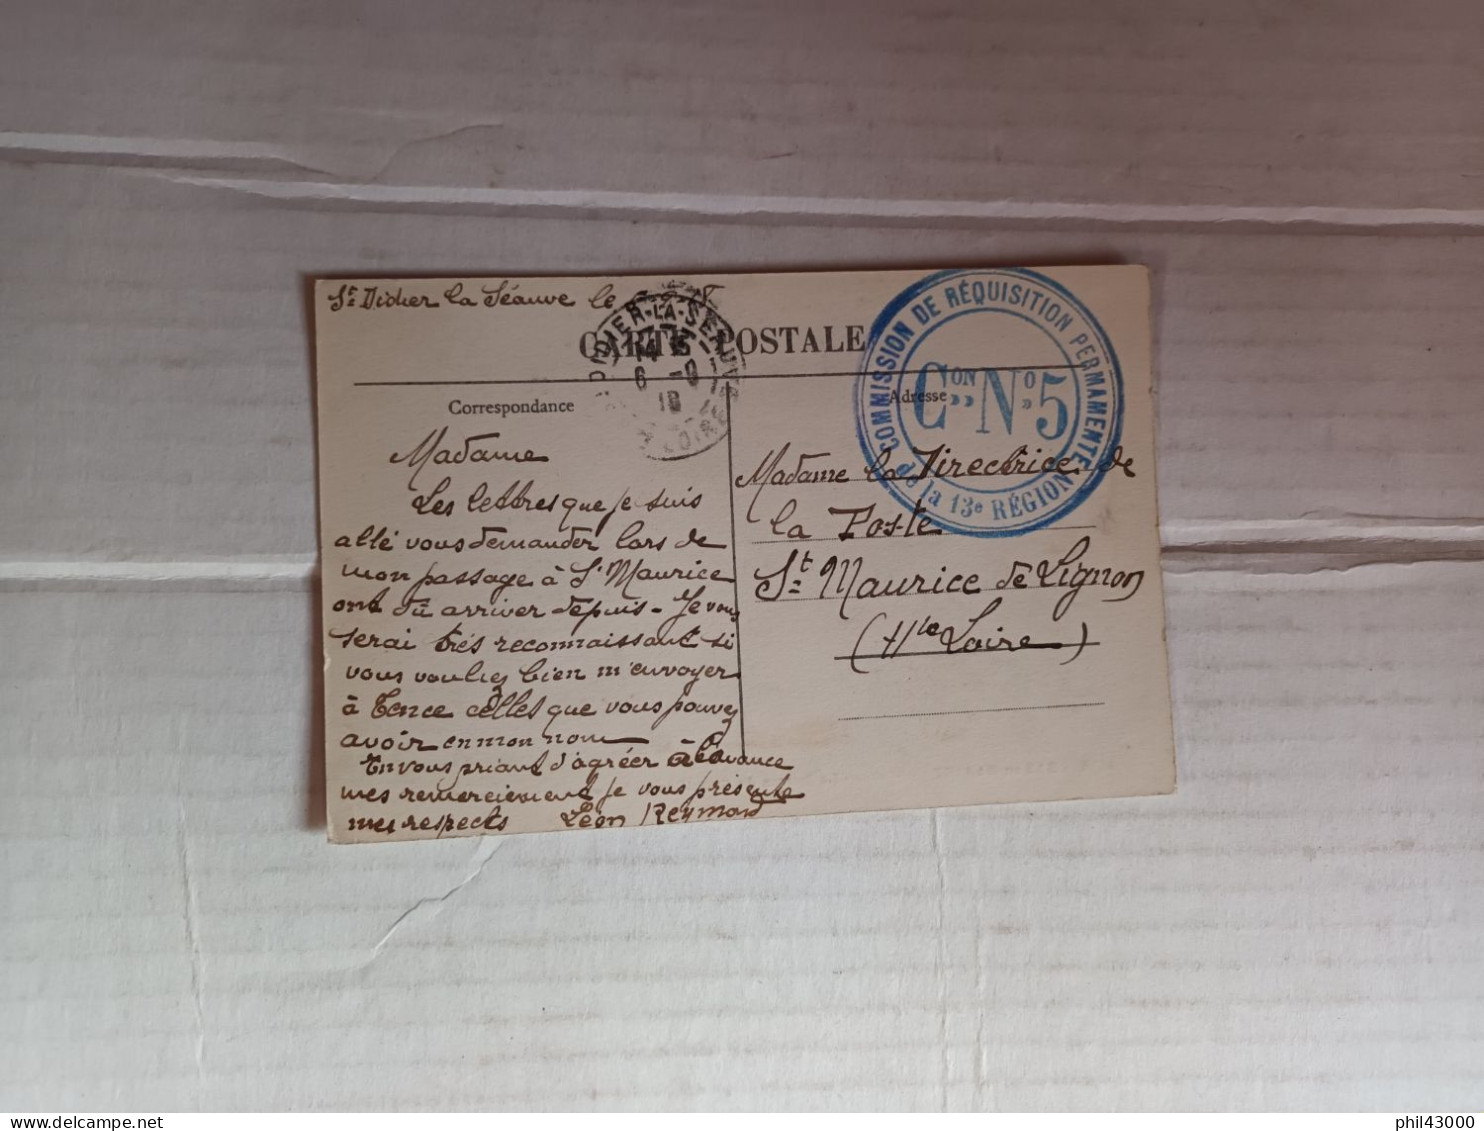 St Didier la Séauve le
DIDIER-LA-SÉAUVE
14 15
6 -9
18
LOIRE
CARTE POSTALE
Correspondance
Adresse
COMMISSION DE RÉQUISITION PERMAMENTE
de la 13e RÉGION
Con No 5
Madame
Les lettres que je suis
allé vous demander lors de
mon passage à St Maurice
ont dû arriver depuis - Je vous
serai très reconnaissant si
vous vouliez bien m'envoyer
à Tence celles que vous pouvez
avoir en mon nom
En vous priant d'agréer à l'avance
mes remerciement je vous présente
mes respects Léon Reymond
Madame la Directrice de
la Poste
St Maurice de Lignon
(Hte Loire)
phil43000